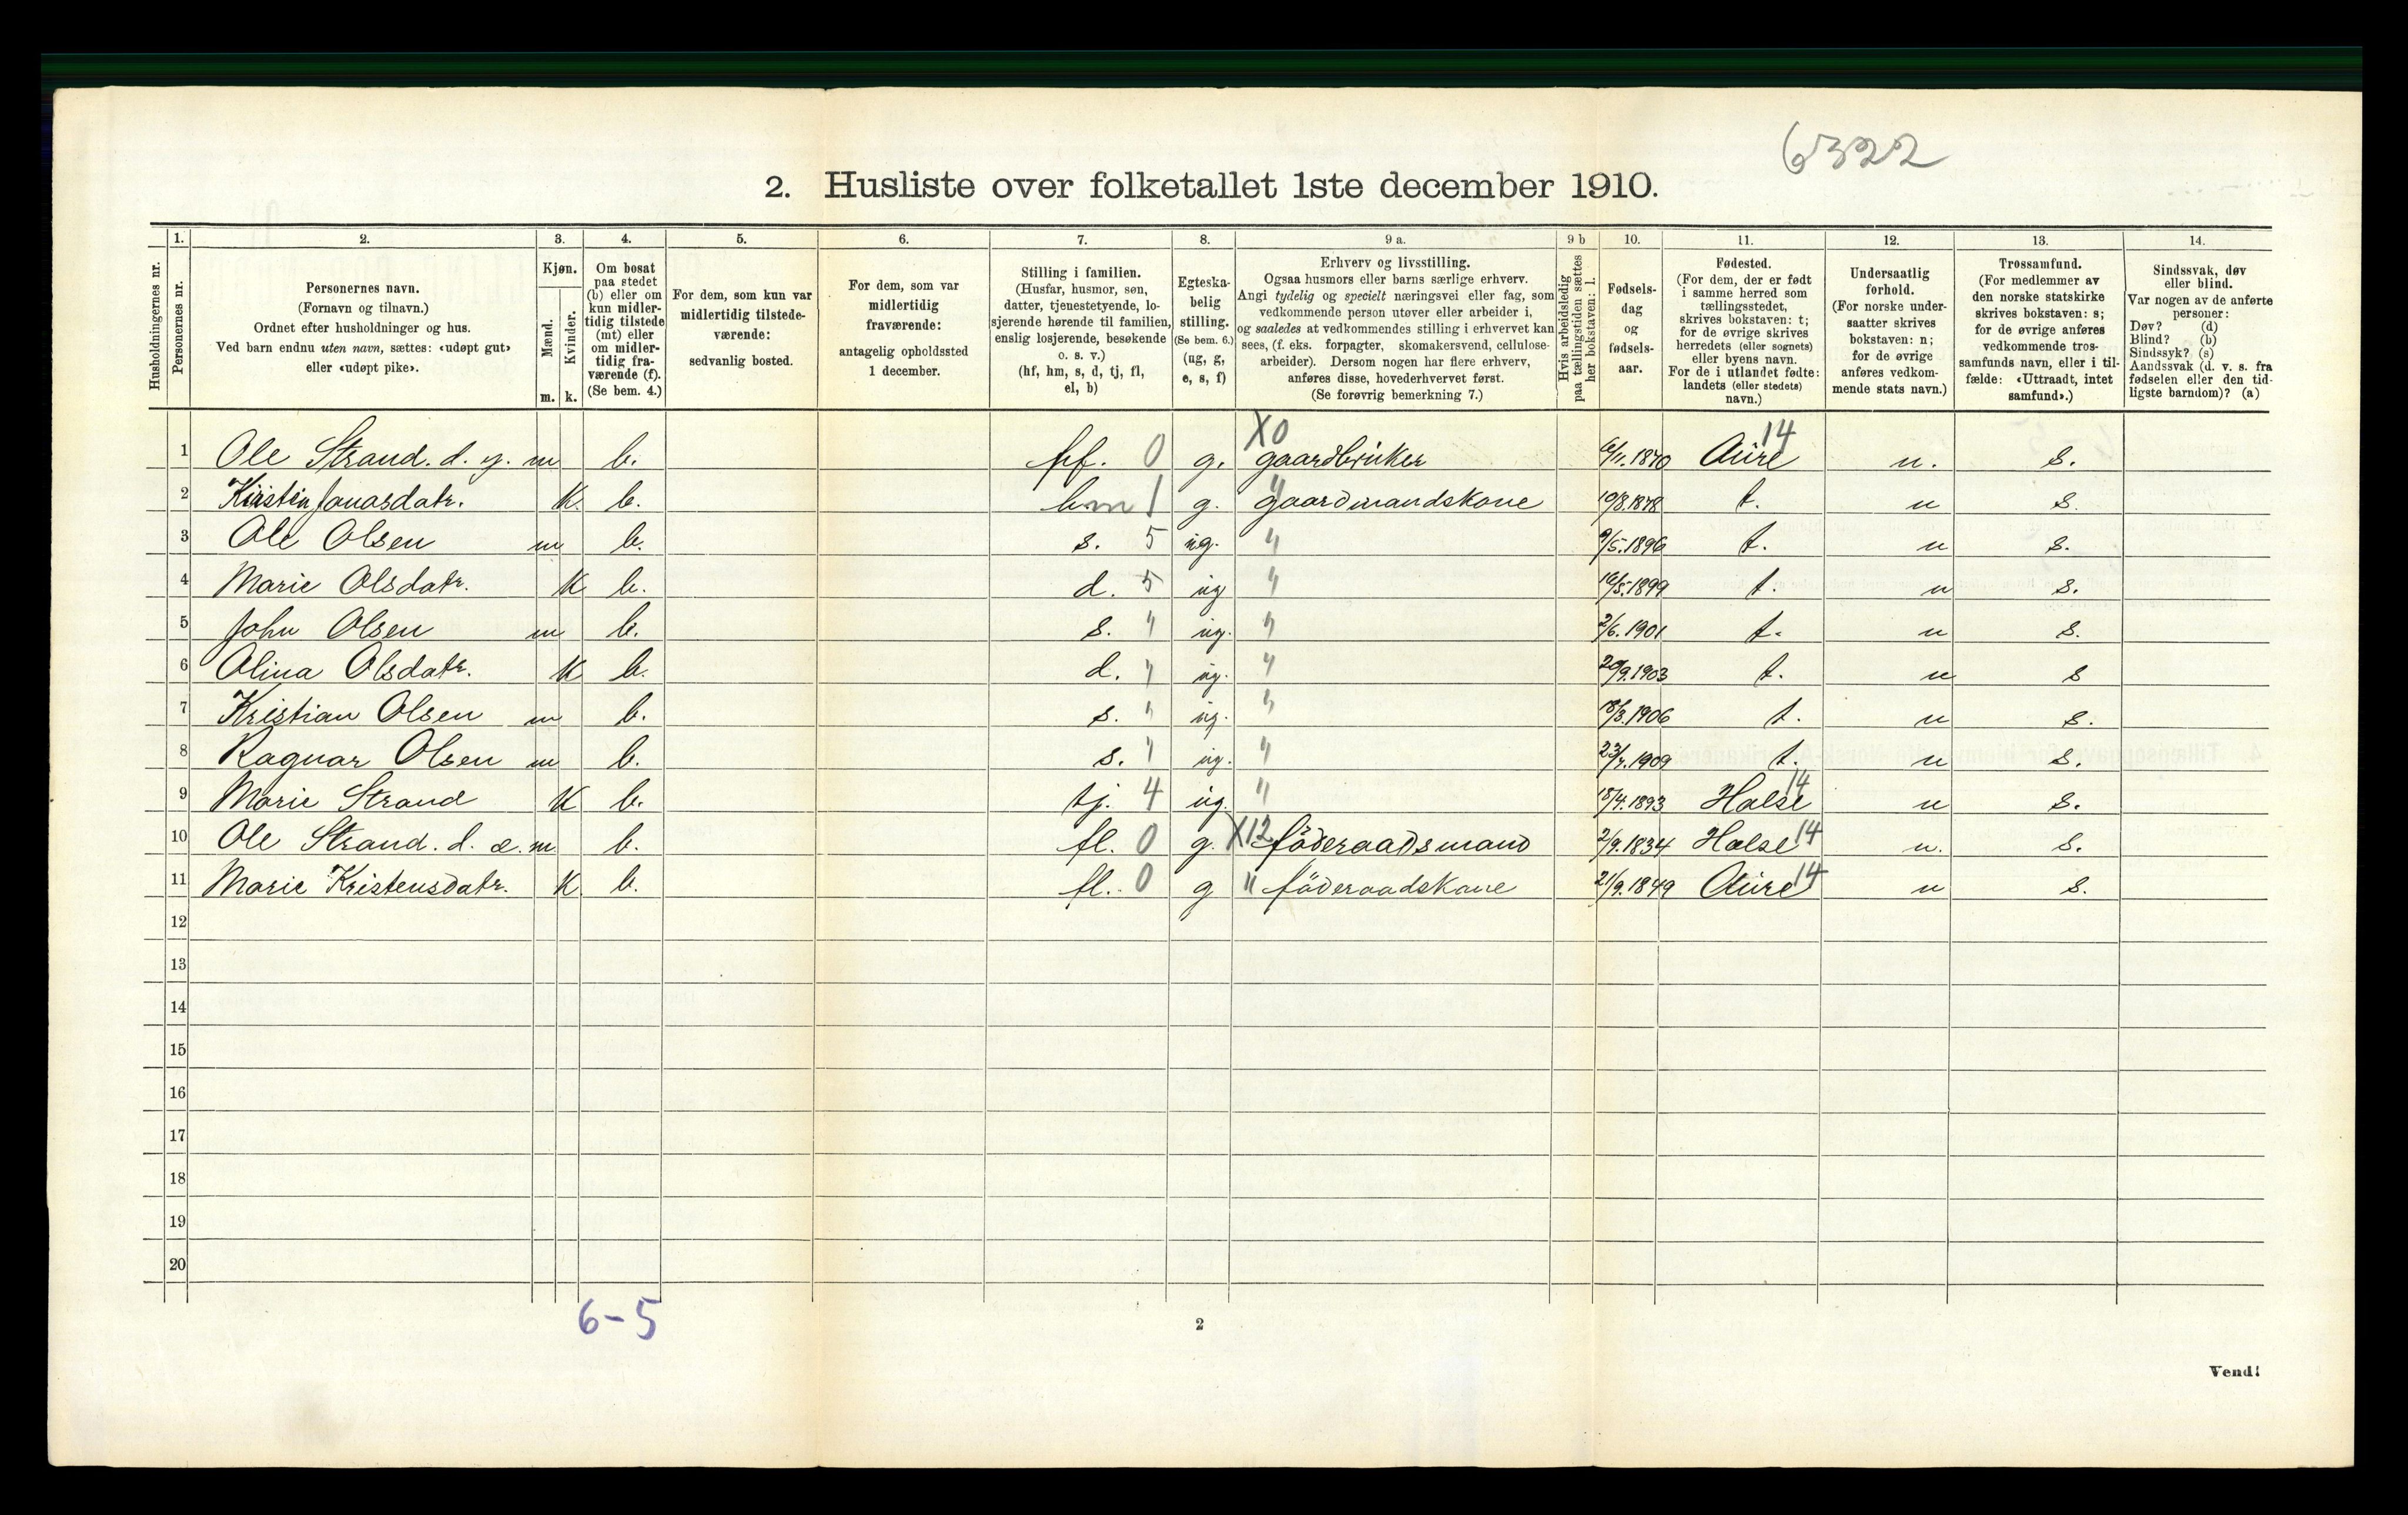 6322
2. Husliste over folketallet 1ste december 1910.
Husholdningernes nr.
1. Personernes nr.
2. Personernes navn.
(Fornavn og tilnavn.)
Ordnet efter husholdninger og hus.
Ved barn endnu uten navn, sættes: «udøpt gut»
eller «udøpt pike».
3. Kjøn.
Mænd. Kvinder.
m. k.
4. Om bosat
paa stedet
(b) eller om
kun midler-
tidig tilstede
(mt) eller
om midler-
tidig fra-
værende (f).
(Se bem. 4.)
5. For dem, som kun var
midlertidig tilstede-
værende:
sedvanlig bosted.
6. For dem, som var
midlertidig
fraværende:
antagelig opholdssted
1 december.
7. Stilling i familien.
(Husfar, husmor, søn,
datter, tjenestetyende, lo-
sjerende hørende til familien,
enslig losjerende, besøkende
o. s. v.)
(hf, hm, s, d, tj, fl,
el, b)
8. Egteska-
belig
stilling.
(Se bem. 6.)
(ug, g,
e, s, f)
9 a. Erhverv og livsstilling.
Ogsaa husmors eller barns særlige erhverv.
Angi tydelig og specielt næringsvei eller fag, som
vedkommende person utøver eller arbeider i,
og saaledes at vedkommendes stilling i erhvervet kan
sees, (f. eks. forpagter, skomakersvend, cellulose-
arbeider). Dersom nogen har flere erhverv,
anføres disse, hovederhvervet først.
(Se forøvrig bemerkning 7.)
9 b Hvis arbeidsledig
paa tællingstiden sættes
her bokstaven: l.
10. Fødsels-
dag
og
fødsels-
aar.
11. Fødested.
(For dem, der er født
i samme herred som
tællingsstedet,
skrives bokstaven: t;
for de øvrige skrives
herredets (eller sognets)
eller byens navn.
For de i utlandet fødte:
landets (eller stedets)
navn.)
12. Undersaatlig
forhold.
(For norske under-
saatter skrives
bokstaven: n;
for de øvrige
anføres vedkom-
mende stats navn.)
13. Trossamfund.
(For medlemmer av
den norske statskirke
skrives bokstaven: s;
for de øvrige anføres
vedkommende tros-
samfunds navn, eller i til-
fælde: «Uttraadt, intet
samfund».)
14. Sindssvak, døv
eller blind.
Var nogen av de anførte
personer:
Døv? (d)
Blind? (b)
Sindssyk? (s)
Aandssvak (d. v. s. fra
fødselen eller den tid-
ligste barndom)? (a)
1 Ole Strand. d. y. m b. hf. 0 g. X0 gaardbruker 6/11.1870 Aure 14 n. s.
2 Kirstin Jonasdatr. K b. hm 1 g. " gaardmandskone 10/8.1878 t. n s.
3 Ole Olsen m b. s. 5 ug. " 9/5.1896 t. n s.
4 Marie Olsdatr. K b. d. 5 ug " 16/5.1899 t. n s.
5 John Olsen m b. s. " ug. " 2/6.1901 t. n s.
6 Olina Olsdatr. K b. d. " ug. " 20/9.1903 t. n s
7 Kristian Olsen m b. s. " ug. " 18/3.1906 t. n s.
8 Ragnar Olsen m b. s. " ug. " t. n s.
9 Marie Strand K b. tj. 4 ug. " 18/4.1893 Halse 14 n s.
10 Ole Strand. d. æ. m b. fl. 0 g. X12 föderaadsmand 2/9.1834 Halse 14 n. s.
11 Marie Kristensdatr. K b. fl. 0 g " föderaadskone 21/9.1849 Aure 14 n s.
12
13
14
15
16
17
18
19
20
6-5
2
Vend!